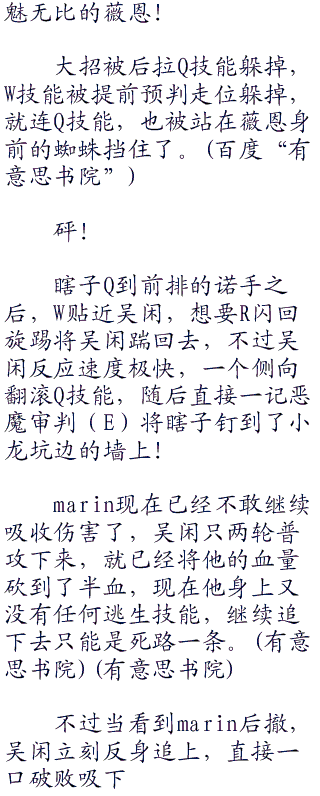 魅无比的薇恩！
大招被后拉Q技能躲掉，
W技能被提前预判走位躲掉，
就连Q技能，也被站在薇恩身
前的蜘蛛挡住了。(百度“有
意思书院”)
砰！
瞎子Q到前排的诺手之
后，W贴近吴闲，想要R闪回
旋踢将吴闲踹回去，不过吴
闲反应速度极快，一个侧向
翻滚Q技能，随后直接一记恶
魔审判（E）将瞎子钉到了小
龙坑边的墙上！
marin现在已经不敢继续
吸收伤害了，吴闲只两轮普
攻下来，就已经将他的血量
砍到了半血，现在他身上又
没有任何逃生技能，继续追
下去只能是死路一条。(有意
思书院)(有意思书院)
不过当看到marin后撤，
吴闲立刻反身追上，直接一
口破败吸下